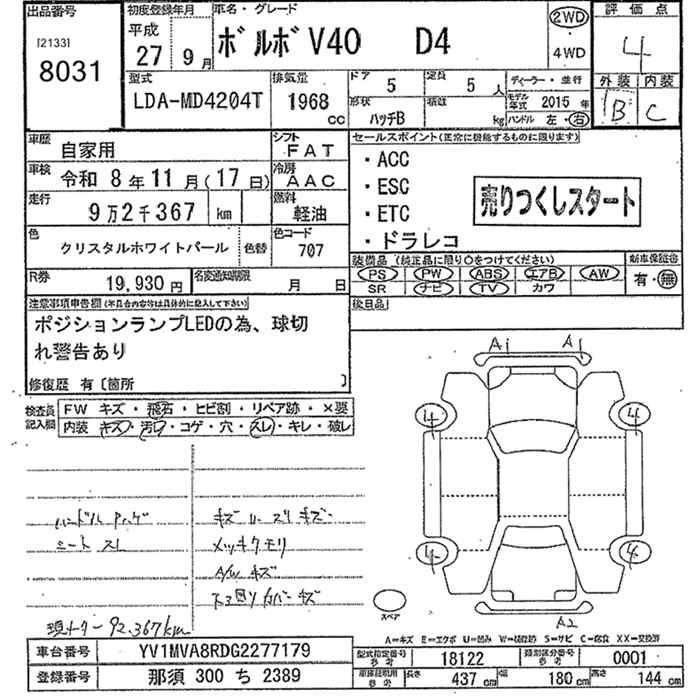 出品番号
[2133]
8031
初度登録年月
平成
27 9月
車名・グレード
ボルボ V40 D4
2WD
4WD
評価点
4
外装 内装
B C
型式
LDA-MD4204T
排気量
1968
cc
ドア
5
定員
5人
形状
ハッチB
積載
kg
ディーラー・並行
モデル年式 2015年
ハンドル 左・右
車歴
自家用
シフト
FAT
車検
令和 8年11月(17日)
冷房
AAC
走行
9万2千367 km
燃料
軽油
色
クリスタルホワイトパール
色替
色コード
707
R券
19,930円
名変通知期限
月 日
セールスポイント(正常に機能するものに限ります)
・ACC
・ESC
・ETC
・ドラレコ
売りつくしスタート
装備品 (純正品に限り○をつけてください)
PS PW ABS エアB AW
SR ナビ TV カワ
新車保証書
有・無
後日品
注意事項申告欄(不具合内容等は具体的に記入して下さい)
ポジションランプLEDの為、球切
れ警告あり
修復歴 有〔箇所 〕
検査員
記入欄
FW キズ・飛石・ヒビ割・リペア跡・×要
内装 キズ・汚レ・コゲ・穴・スレ・キレ・破レ
シート スレ
メッキクモリ
A/W キズ
現メーター 92,367km
A1 A1
4 4
4 4
A2
スペア
A=キズ E=エクボ U=凹み W=補修跡 S=サビ C=腐食 XX=交換済
車台番号
YV1MVA8RDG2277179
登録番号
那須 300 ち 2389
型式指定番号
参考
18122
類別区分番号
参考
0001
車庫証明用
参考
長さ 437 cm 幅 180 cm 高さ 144 cm